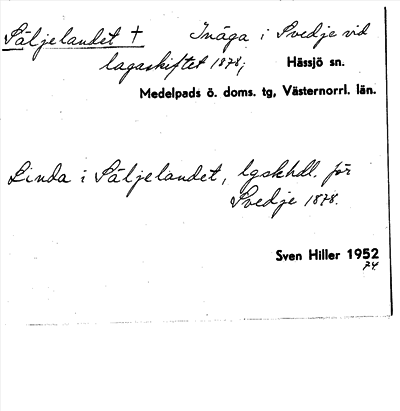 Säljelandet † Inäga i Svedje vid
lagaskiftet 1878;
Hässjö sn.
Medelpads ö. doms. tg, Västernorrl. län.
Linda i Säljelandet, lgskhdl. för
Svedje 1878.
Sven Hiller 1952
74